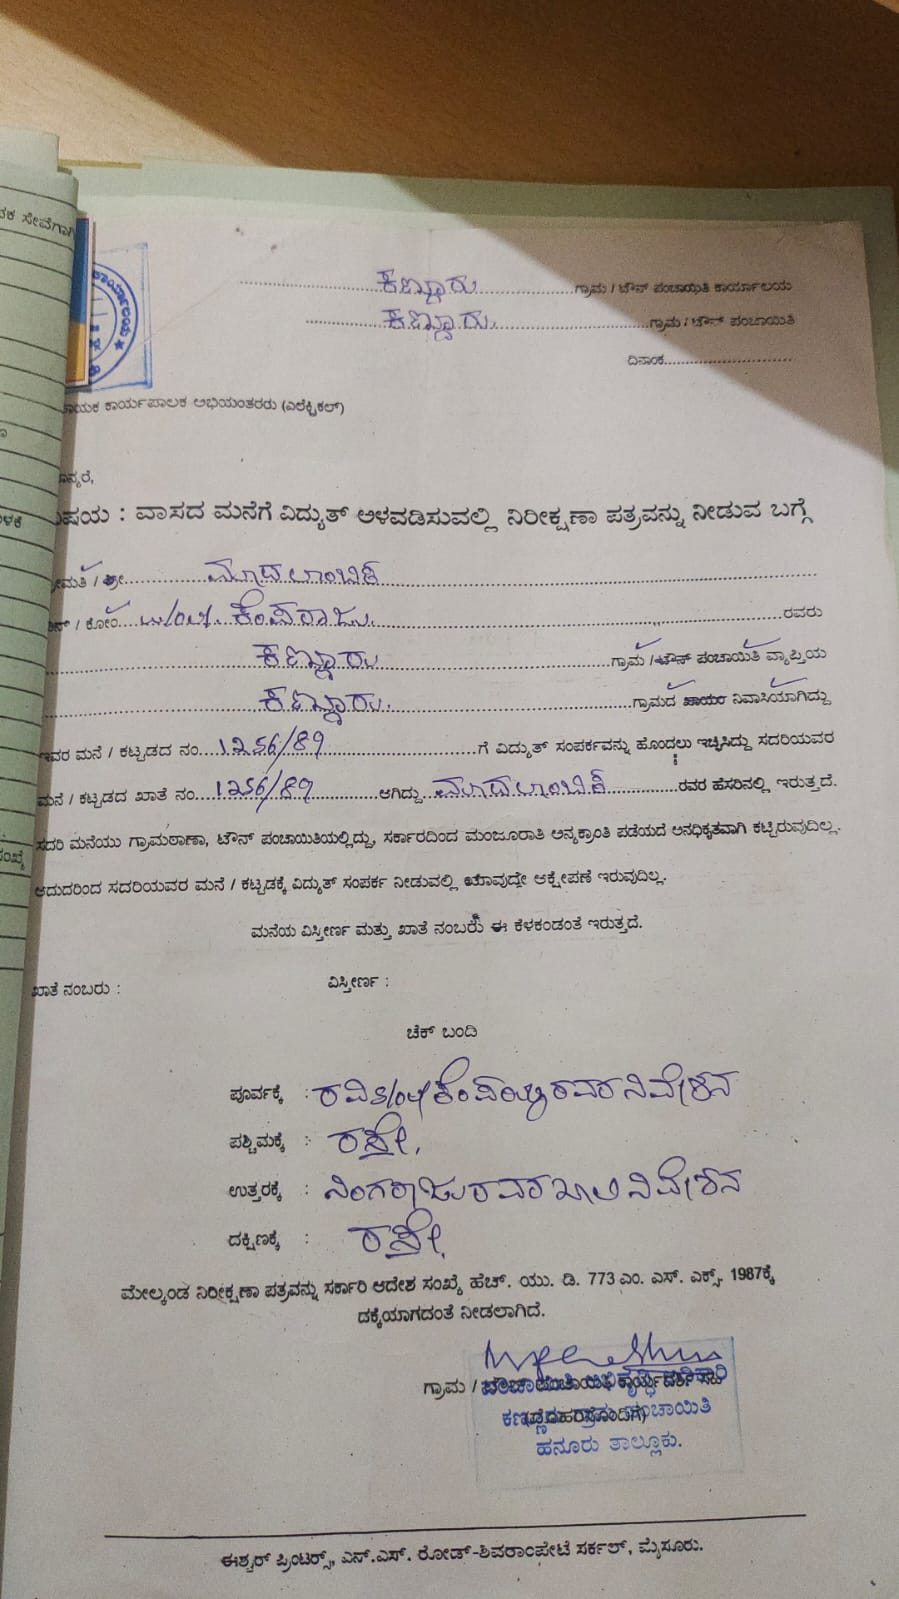 ಕಣ್ಣೂರು ಗ್ರಾಮ / ಟೌನ್ ಪಂಚಾಯಿತಿ ಕಾರ್ಯಾಲಯ
ಕಣ್ಣೂರು. ಗ್ರಾಮ / ಟೌನ್ ಪಂಚಾಯಿತಿ
ದಿನಾಂಕ
ಕಾರ್ಯಪಾಲಕ ಅಭಿಯಂತರರು (ಎಲೆಕ್ಟ್ರಿಕಲ್)
: ವಾಸದ ಮನೆಗೆ ವಿದ್ಯುತ್ ಅಳವಡಿಸುವಲ್ಲಿ ನಿರೀಕ್ಷಣಾ ಪತ್ರವನ್ನು ನೀಡುವ ಬಗ್ಗೆ
/ ಶ್ರೀ ಮಾದಲಾಂಬಿಕೆ
/ ಕೋಂ W/o ಕೆಂಪರಾಜು. ರವರು
ಕಣ್ಣೂರು ಗ್ರಾಮ / ಟೌನ್ ಪಂಚಾಯಿತಿ ವ್ಯಾಪ್ತಿಯ
ಕಣ್ಣೂರು. ಗ್ರಾಮದ ಖಾಯಂ ನಿವಾಸಿಯಾಗಿದ್ದು
ಇವರ ಮನೆ / ಕಟ್ಟಡದ ನಂ 1256/89 ಗೆ ವಿದ್ಯುತ್ ಸಂಪರ್ಕವನ್ನು ಹೊಂದಲು ಇಚ್ಛಿಸಿದ್ದು ಸದರಿಯವರ
ಮನೆ / ಕಟ್ಟಡದ ಖಾತೆ ನಂ 1256/89 ಆಗಿದ್ದು ಮಾದಲಾಂಬಿಕೆ ರವರ ಹೆಸರಿನಲ್ಲಿ ಇರುತ್ತದೆ.
ಸದರಿ ಮನೆಯು ಗ್ರಾಮಠಾಣಾ, ಟೌನ್ ಪಂಚಾಯಿತಿಯಲ್ಲಿದ್ದು, ಸರ್ಕಾರದಿಂದ ಮಂಜೂರಾತಿ ಅನ್ಯಕ್ರಾಂತಿ ಪಡೆಯದೆ ಅನಧಿಕೃತವಾಗಿ ಕಟ್ಟಿರುವುದಿಲ್ಲ.
ಆದುದರಿಂದ ಸದರಿಯವರ ಮನೆ / ಕಟ್ಟಡಕ್ಕೆ ವಿದ್ಯುತ್ ಸಂಪರ್ಕ ನೀಡುವಲ್ಲಿ ಯಾವುದೇ ಆಕ್ಷೇಪಣೆ ಇರುವುದಿಲ್ಲ.
ಮನೆಯ ವಿಸ್ತೀರ್ಣ ಮತ್ತು ಖಾತೆ ನಂಬರು ಈ ಕೆಳಕಂಡಂತೆ ಇರುತ್ತದೆ.
ಖಾತೆ ನಂಬರು : ವಿಸ್ತೀರ್ಣ :
ಚೆಕ್ ಬಂದಿ
ಪೂರ್ವಕ್ಕೆ : ರವಿ S/o ಕೆಂಪಯ್ಯ ರವರ ನಿವೇಶನ
ಪಶ್ಚಿಮಕ್ಕೆ : ರಸ್ತೇ.
ಉತ್ತರಕ್ಕೆ : ನಿಂಗರಾಜು ರವರ ಖಾಲಿ ನಿವೇಶನ
ದಕ್ಷಿಣಕ್ಕೆ : ರಸ್ತೇ.
ಮೇಲ್ಕಂಡ ನಿರೀಕ್ಷಣಾ ಪತ್ರವನ್ನು ಸರ್ಕಾರಿ ಆದೇಶ ಸಂಖ್ಯೆ ಹೆಚ್. ಯು. ಡಿ. 773 ಎಂ. ಎಸ್. ಎಕ್ಸ್. 1987ಕ್ಕೆ
ದಕ್ಕೆಯಾಗದಂತೆ ನೀಡಲಾಗಿದೆ.
ಗ್ರಾಮ /
ಹನೂರು ತಾಲ್ಲೂಕು.
ಈಶ್ವರ್ ಪ್ರಿಂಟರ್ಸ್, ಎನ್.ಎಸ್. ರೋಡ್-ಶಿವರಾಂಪೇಟೆ ಸರ್ಕಲ್, ಮೈಸೂರು.